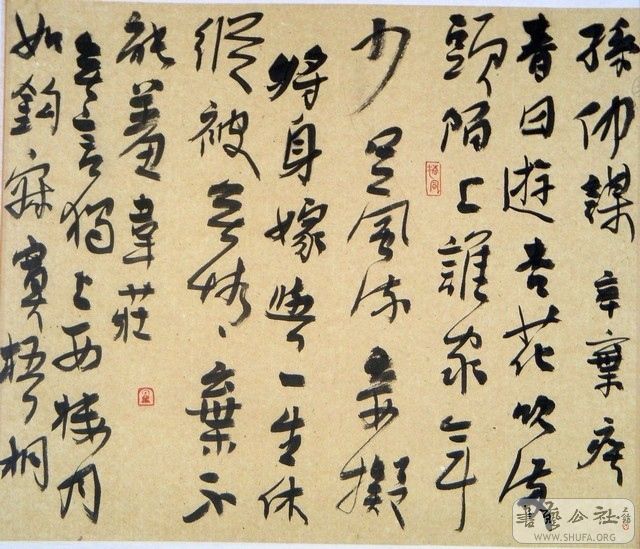 孫仲謀 辛棄疾
春日遊杏花吹滿
頭陌上誰家年
少足風流妾擬
將身嫁與一生休
縱被無情、棄不
能羞 韋莊
無言獨上西樓月
如鉤寂寞梧桐
書藝公社
WWW.SHUFA.ORG